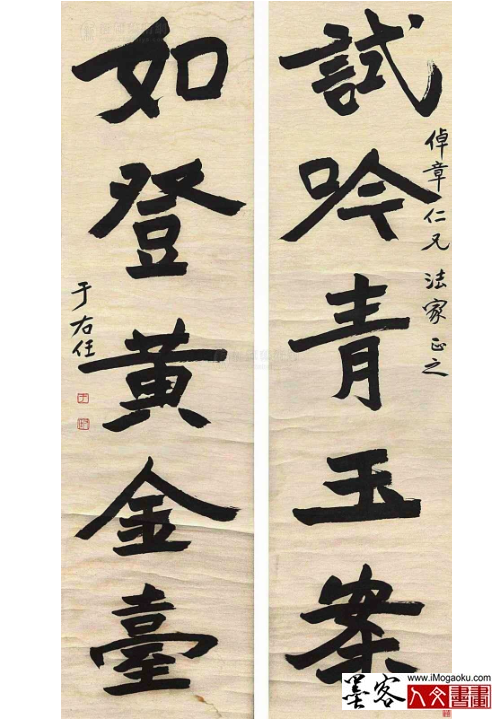 試吟青玉案
倬章仁兄 法家正之
如登黃金臺
于右任
墨客
www.iMogaoku.com
人文書畫